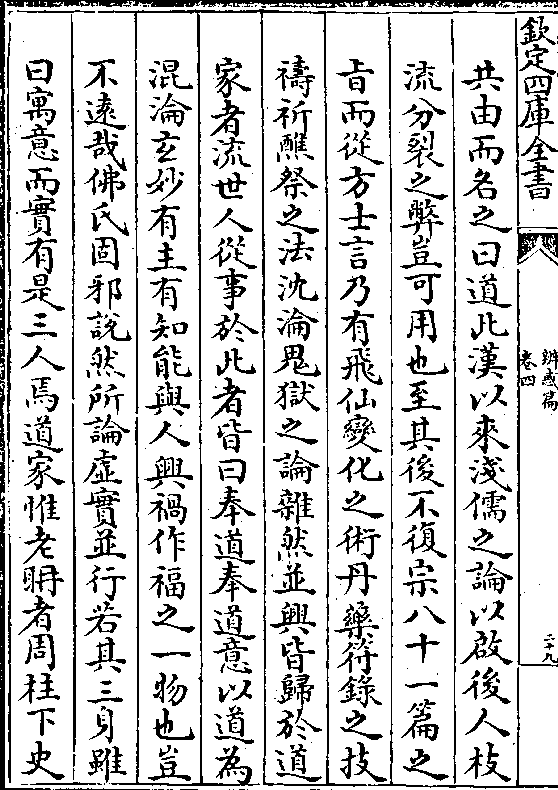 欽定四庫全書
辨惑篇
卷四
二十九
共由而名之曰道此漢以來淺儒之論以啟後人枝
流分裂之弊豈可用也至其後不復宗八十一篇之
旨而從方士言乃有飛仙變化之術丹藥符籙之技
禱祈醮祭之法沈淪鬼獄之論雜然並興皆歸於道
家者流世人從事於此者皆曰奉道奉道意以道為
混淪玄妙有主有知能與人興禍作福之一物也豈
不遠哉佛氏固邪說然所論虛實並行若其三身雖
曰寓意而實有是三人焉道家惟老聃者周柱下史